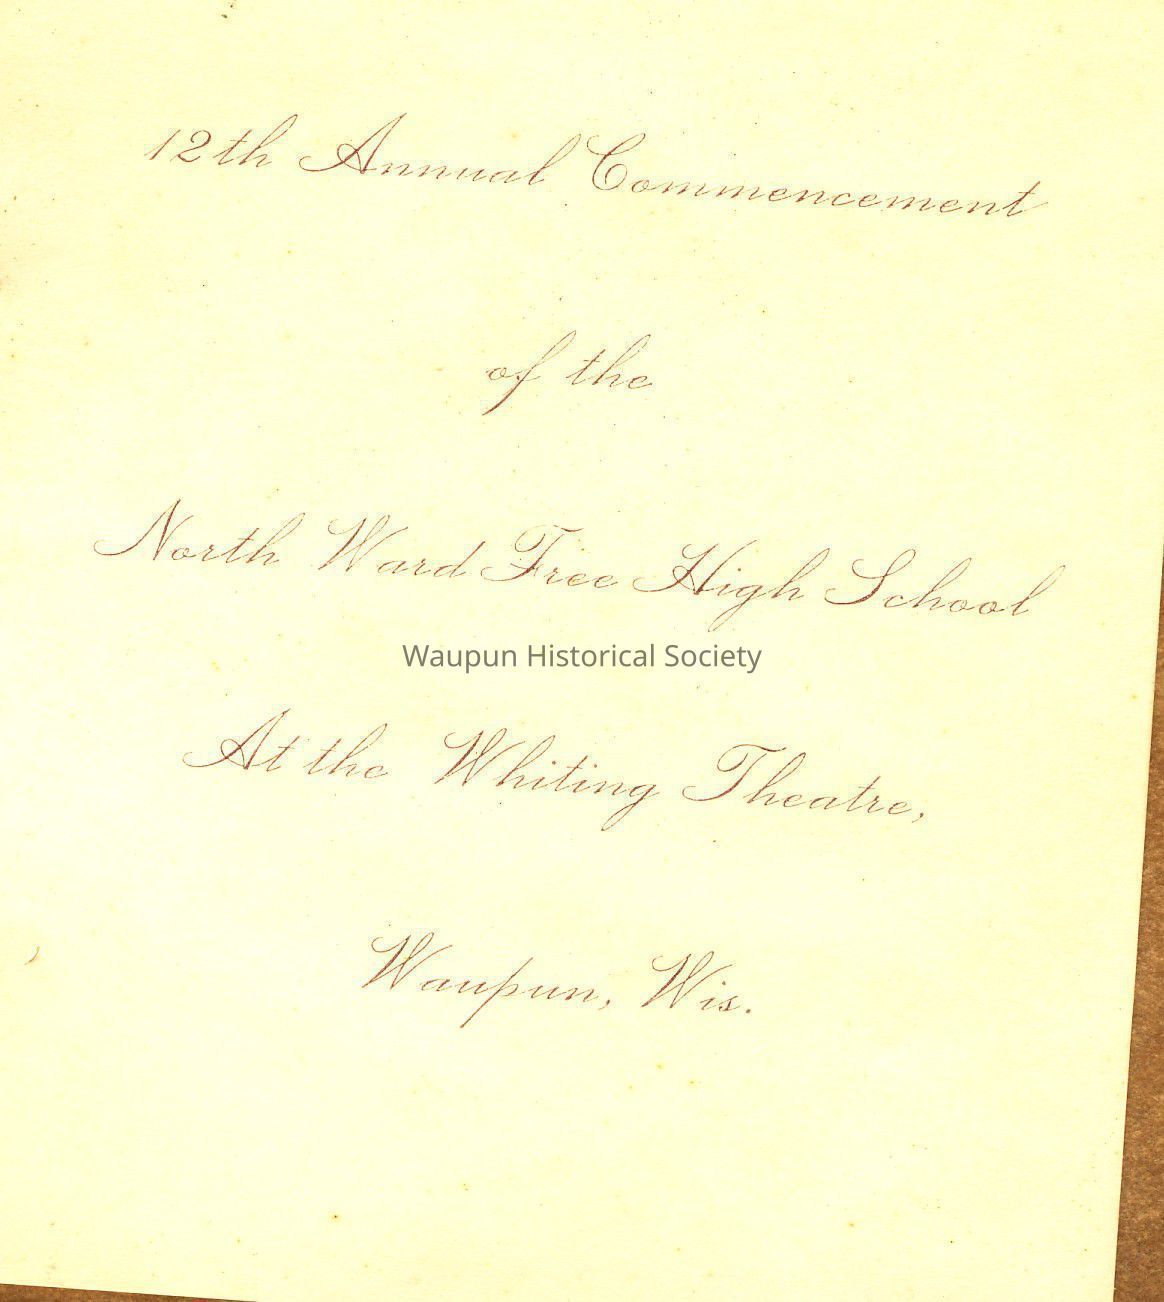 12th Annual Commencement
of the
North Ward Free High School
Waupun Historical Society
At the Whiting Theatre,
Waupun, Wis.